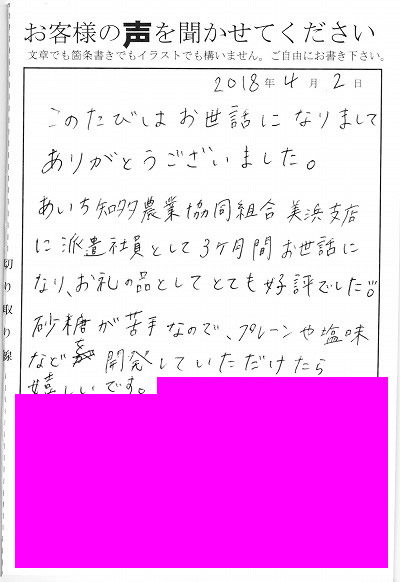 お客様の声を聞かせてください
文章でも箇条書きでもイラストでも構いません。ご自由にお書き下さい。
2018年4月2日
このたびはお世話になりまして
ありがとうございました。
あいち知多農業協同組合 美浜支店
に派遣社員として3ヶ月間お世話に
なり、お礼の品としてとても好評でした。
砂糖が苦手なので、プレーンや塩味
など開発していただけたら
嬉しいです。
切り取り線